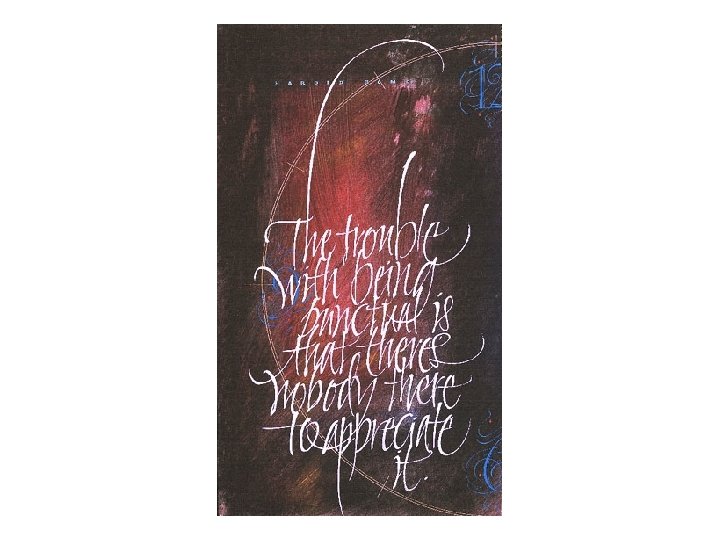 12
The trouble
with being
punctual is
that theres
nobody there
to appreciate
it.
6